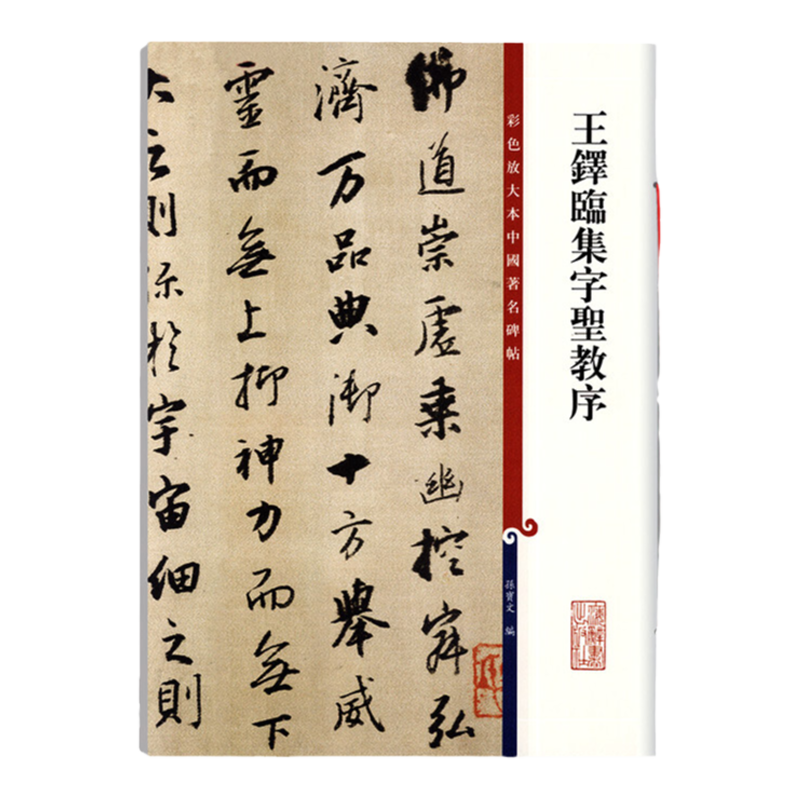 王鐸臨集字聖教序
彩色放大本中國著名碑帖
孫寶文 編
佛道崇虛乘幽控寂弘
濟万品典御十方舉威
靈而無上抑神力而無下
大之則弥於宇宙細之則